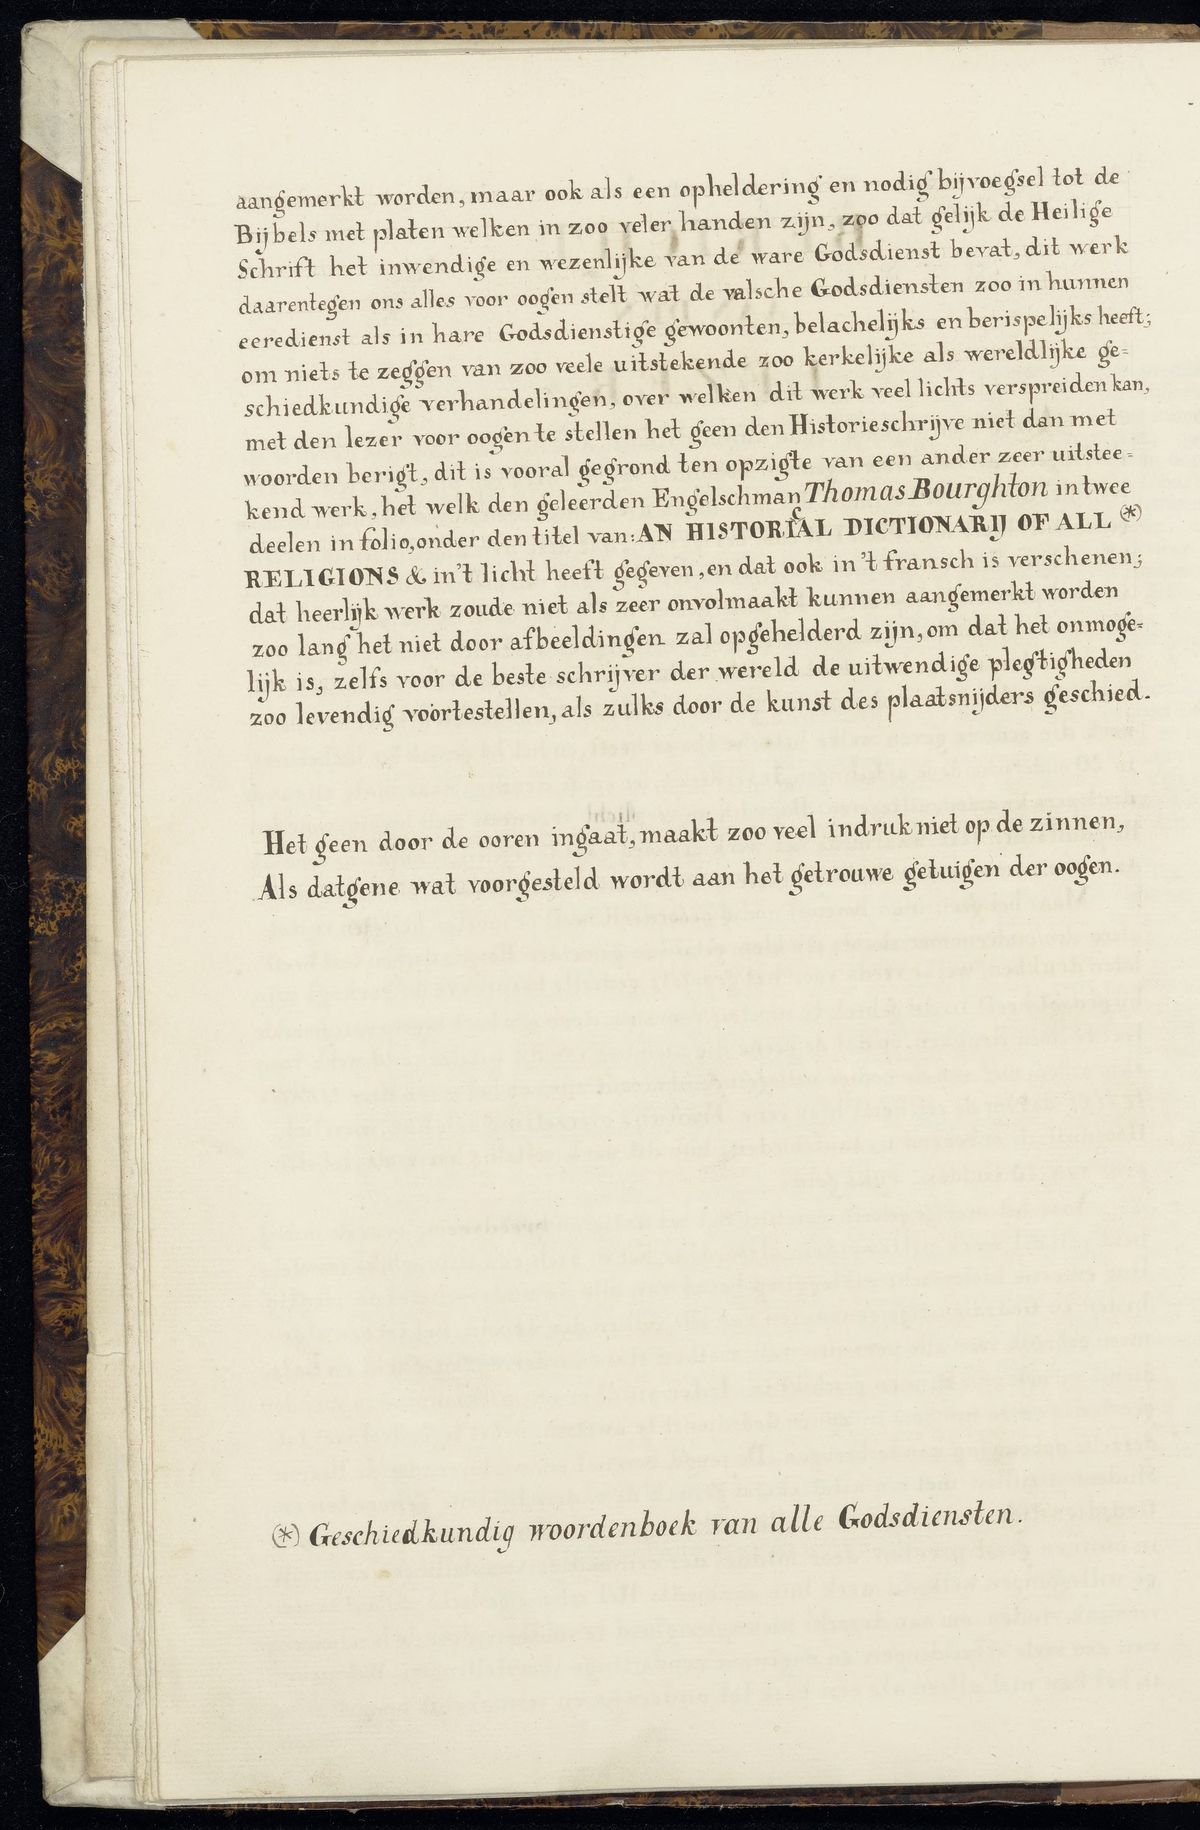 aangemerkt worden, maar ook als een opheldering en nodig bijvoegsel tot de
Bijbels met platen welken in zoo veler handen zijn, zoo dat gelijk de Heilige
Schrift het inwendige en wezenlijke van de ware Godsdienst bevat, dit werk
daarentegen ons alles voor oogen stelt wat de valsche Godsdiensten zoo in hunnen
eeredienst als in hare Godsdienstige gewoonten, belachelijks en berispelijks heeft;
om niets te zeggen van zoo veele uitstekende zoo kerkelijke als wereldlijke ge=
schiedkundige verhandelingen, over welken dit werk veel lichts verspreiden kan,
met den lezer voor oogen te stellen het geen den Historieschrijve niet dan met
woorden berigt, dit is vooral gegrond ten opzigte van een ander zeer uitstee=
kend werk, het welk den geleerden Engelschman Thomas Bourghton in twee
deelen in folio, onder den titel van: AN HISTORICAL DICTIONARIJ OF ALL (*)
RELIGIONS & in't licht heeft gegeven, en dat ook in 't fransch is verschenen;
dat heerlijk werk zoude niet als zeer onvolmaakt kunnen aangemerkt worden
zoo lang het niet door afbeeldingen zal opgehelderd zijn, om dat het onmoge=
lijk is, zelfs voor de beste schrijver der wereld de uitwendige plegtigheden
zoo levendig voortestellen, als zulks door de kunst des plaatsnijders geschied.
Het geen door de ooren ingaat, maakt zoo veel indruk niet op de zinnen,
Als datgene wat voorgesteld wordt aan het getrouwe getuigen der oogen.
(*) Geschiedkundig woordenboek van alle Godsdiensten.